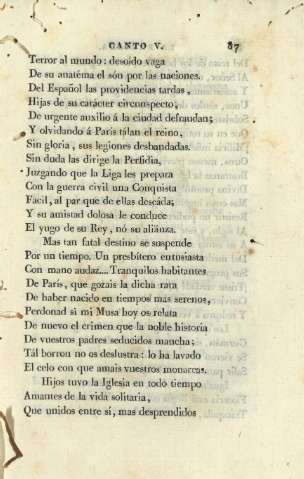 CANTO V. 87
Terror al mundo: desoido vaga
De su anatéma el són por las naciones.
Del Español las providencias tardas,
Hijas de su carácter circunspecto,
De urgente auxilio á la ciudad defraudan;
Y olvidando á Paris tálan el reino,
Sin gloria, sus legiones desbandadas.
Sin duda las dirige la Perfidia,
Juzgando que la Liga les prepara
Con la guerra civil una Conquista
Facil, al par que de ellas deseáda;
Y su amistad dolosa le conduce
El yugo de su Rey, nó su aliánza.
Mas tan fatal destino se suspende
Por un tiempo. Un presbítero entusiasta
Con mano audaz.... Tranquilos habitantes
De Paris, que gozais la dicha rata
De haber nacido en tiempos mas serenos,
Perdonad si mi Musa hoy os relata
De nuevo el crimen que la noble historia
De vuestros padres seducidos mancha;
Tál borron no os deslustra: lo ha lavado
El celo con que amais vuestros monarcas.
Hijos tuvo la Iglesia en todo tiempo
Amantes de la vida solitaria,
Que unidos entre sí, mas desprendidos